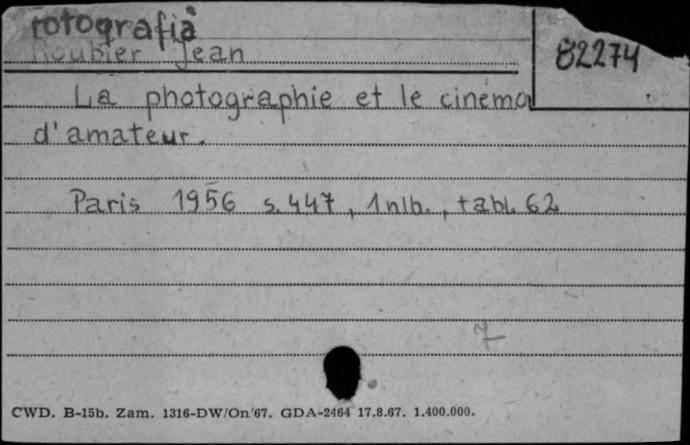 fotografia
82274
Roubier Jean
La photographie et le cinéma
d'amateur.
Paris 1956 s. 447, 1 nlb., tabl. 62
7
CWD. B-15b. Zam. 1316-DW/On/67. GDA-2464 17.8.67. 1.400.000.